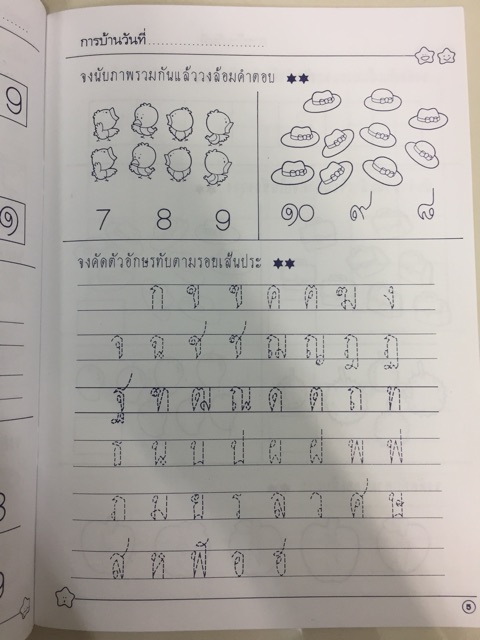 การบ้านวันที่
จงนับภาพรวมกันแล้ววงล้อมคำตอบ
7 8 9
๑๐ ๙ ๘
จงคัดตัวอักษรทับตามรอยเส้นประ
ก ข ฃ ค ฅ ฆ ง
จ ฉ ช ซ ฌ ญ ฎ ฏ
ฐ ฑ ฒ ณ ด ต ถ ท
ธ น บ ป ผ ฝ พ ฟ
ภ ม ย ร ล ว ศ ษ
ส ห ฬ อ ฮ
5
9
๑